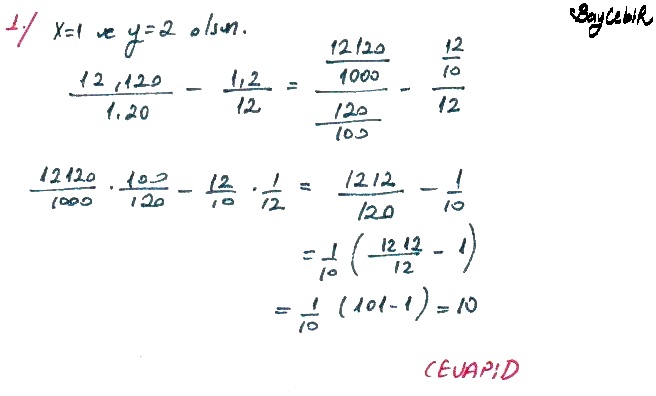 BaycebiR
1-/ X=1 ve y=2 olsun.
12,120/1.20 - 1,2/12 = (12120/1000)/(120/100) - (12/10)/12
12120/1000 · 100/120 - 12/10 · 1/12 = 1212/120 - 1/10
= 1/10 (1212/12 - 1)
= 1/10 (101-1) = 10
CEVAP:D